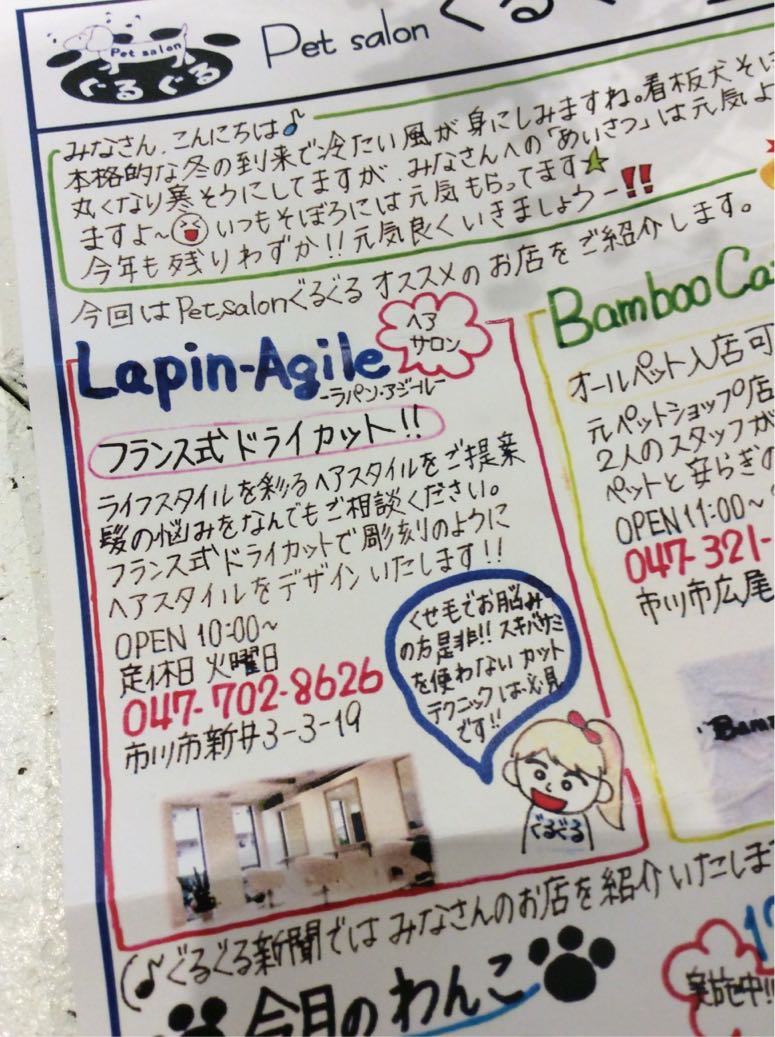 Pet salon
ぐるぐる
Pet salon ぐる
みなさん、こんにちは♪
本格的な冬の到来で冷たい風が身にしみますね。看板犬そぼ
丸くなり寒そうにしてますが、みなさんへの「あいさつ」は元気よ
ますよ~いつもそぼろには元気もらってます☆
今年も残りわずか!!元気良くいきましょうー!!
今回はPet.salonぐるぐるオススメのお店をご紹介します。
Lapin-Agile
-ラパン・アジール-
ヘア
サロン
フランス式ドライカット!!
ライフスタイルを彩るヘアスタイルをご提案
髪の悩みをなんでもご相談ください。
フランス式ドライカットで彫刻のように
ヘアスタイルをデザインいたします!!
OPEN 10:00~
定休日 火曜日
047-702-8626
市川市新井3-3-19
くせ毛でお悩み
の方是非!!スキバサミ
を使わないカット
テクニックは必見
です!!
ぐるぐる
Bamboo Ca
オールペット入店可
元ペットショップ店
2人のスタッフが
ペットと安らぎの
OPEN 11:00~
047-321-
市川市広尾
Bam
(♪ぐるぐる新聞ではみなさんのお店を紹介いたしま
今月のわんこ
実施中!!